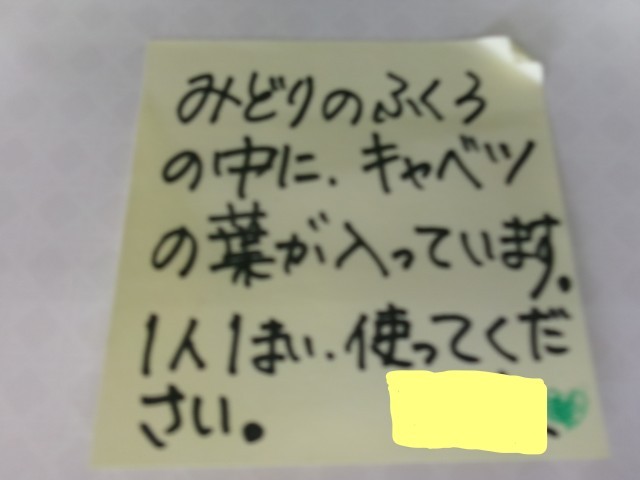 みどりのふくろ
の中に、キャベツ
の葉が入っています。
1人1まい、使ってくだ
さい。